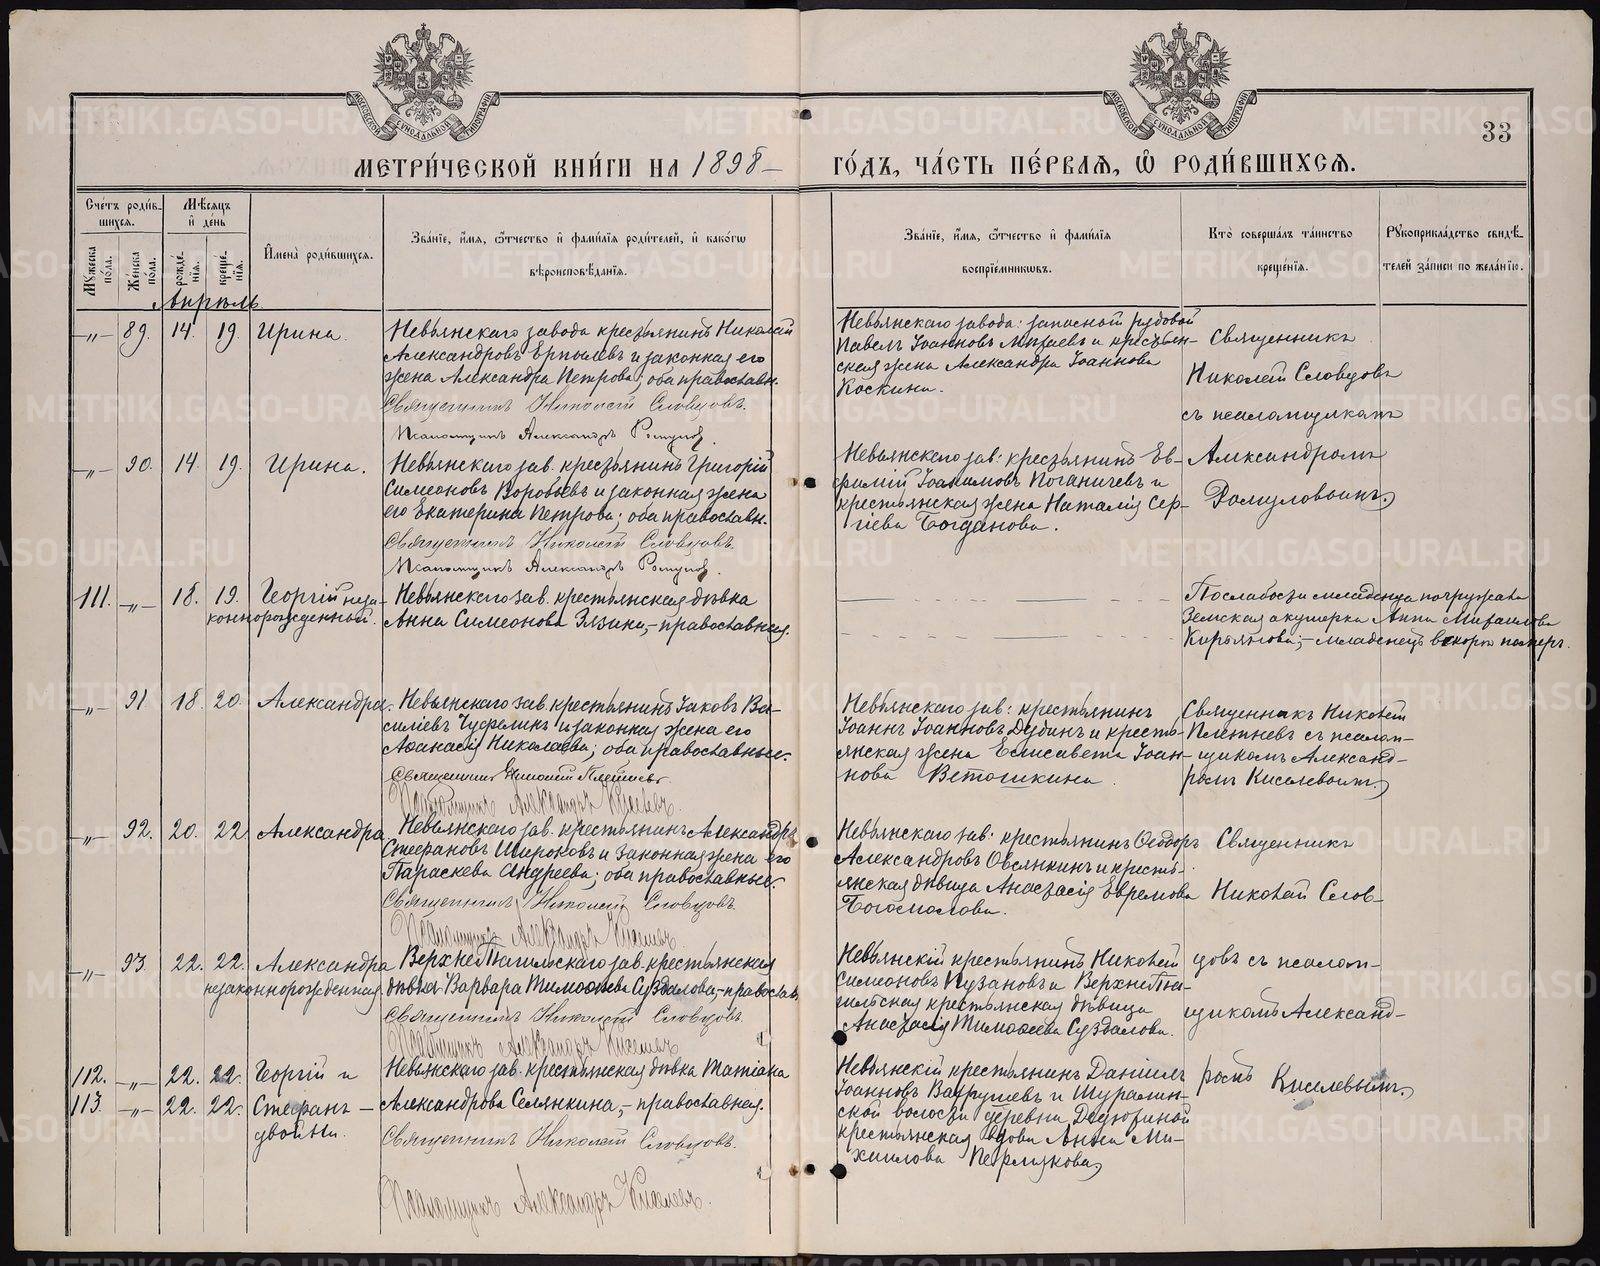 МОСКОВСКОЙ СѴНОДАЛЬНОЙ ТИПОГРАФІИ
МОСКОВСКОЙ СѴНОДАЛЬНОЙ ТИПОГРАФІИ
33
МЕТРИ́ЧЕСКОЙ КНИ́ГИ НА 1898 –
ГО́ДЪ, ЧА́СТЬ ПЕ́РВАѦ, Ѽ РОДИ́ВШИХСѦ.
Сче́тъ роди́в-
шихсѧ.
Мѣ́сѧцъ
и҆ де́нь
Мꙋжеска пола.
Же́нска по́ла.
рожде́-
нїѧ.
креще́-
нїѧ.
И҆мена̀ роди́вшихсѧ.
Зва́нїе, и҆́мѧ, ѻ҆́тчество и҆ фами́лїѧ роди́телей, и҆ како́гѡ
вѣроисповѣ́данїѧ.
Зва́нїе, и҆́мѧ, ѻ҆́тчество и҆ фами́лїѧ
воспрїе́мникѡвъ.
Кто̀ соверша́лъ та́инство
креще́нїѧ.
Рꙋкоприкла́дство свидѣ́-
телей за́писи по жела́нїю.
Апрѣль
–„– 89. 14. 19. Ирина.
Невьянскаго завода крестьянинъ Николай
Александровъ и законная его
жена Александра Петрова; оба православн.
Священникъ Николай Словцовъ.
Псаломщикъ Александръ
Невьянскаго завода: запасной рядовой
Павелъ Іоанновъ и крестьян-
ская жена Александра Іоаннова
Коскина.
Священникъ
Николай Словцовъ
съ псаломщикомъ
–„– 90. 14. 19. Ирина.
Невьянскаго зав. крестьянинъ Григорій
Симеоновъ Воробьевъ и законная жена
его Екатерина Петрова; оба православн.
Священникъ Николай Словцовъ.
Псаломщикъ Александръ
Невьянскаго зав: крестьянинъ Ев-
фимій Іоакимовъ Поганичевъ и
крестьянская жена Наталія Сер-
гіева Богданова.
Александромъ
111. –„– 18. 19. Георгій неза-
коннорожденный.
Невьянскаго зав. крестьянская дѣвка
Анна Симеонова – православная.
По слабости младенца погружала
Земская акушерка Анна Михаилова
младенецъ вскорѣ померъ.
–„– 91 18. 20. Александра.
Невьянскаго зав. крестьянинъ Іаковъ Ва-
силіевъ и законная жена его
Аѳанасія Николаева; оба православные.
Священникъ Николай Плетневъ
Псаломщикъ Александръ Киселевъ.
Невьянскаго зав: крестьянинъ
Іоаннъ Іоанновъ Дубинъ и кресть-
янская жена Елисавета Іоан-
нова Ветошкина.
Священникъ Николай
Плетневъ съ псалом-
щикомъ Александ-
ромъ Киселевымъ.
–„– 92. 20. 22 Александра
Невьянскаго зав. крестьянинъ Александръ
Стефановъ Широковъ и законная жена его
Параскева Андреева; оба православные.
Священникъ Николай Словцовъ.
Псаломщикъ Александръ Киселевъ.
Невьянскаго зав: крестьянинъ Ѳеодоръ
Александровъ Овсянкинъ и кресть-
янская дѣвица Анастасія Ефремова
Богомолова.
Священникъ
Николай Слов-
–„– 93. 22. 22. Александра
незаконнорожденная.
Верхне-Тагильскаго зав. крестьянская
дѣвка Варвара Тимоѳеева Суздалова, – православ.
Священникъ Николай Словцовъ.
Псаломщикъ Александръ Киселевъ
Невьянскій крестьянинъ Николай
Симеоновъ Пузановъ и Верхне-Та-
гильская крестьянская дѣвица
Анастасія Тимоѳеева Суздалова.
цовъ съ псалом-
щикомъ Александ-
112. –„– 22. 22. Георгій и
113. –„– 22. 22. Стефанъ –
двойни.
Невьянскаго зав. крестьянская дѣвка Татіана
Александрова Селянкина, – православная.
Священникъ Николай Словцовъ.
Псаломщикъ Александръ Киселевъ.
Невьянскій крестьянинъ Даніилъ
Іоанновъ Вахрушевъ и Шуралин-
ской волости деревни
крестьянская вдова Анна Ми-
хаилова Пермякова
ромъ Киселевымъ.
METRIKI.GASO-URAL.RU